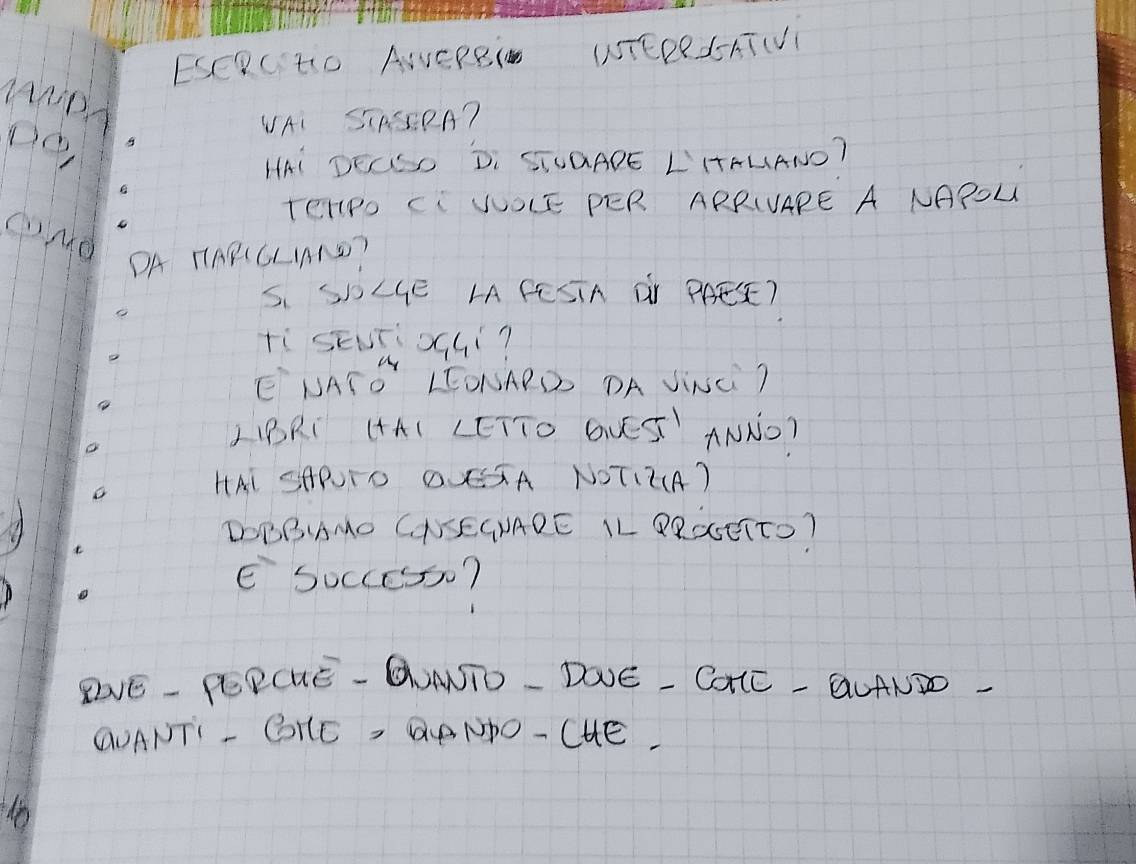 ESERCIZIO AVVERBI INTERROGATIVI
VAI STASERA?
HAI DECISO DI STUDIARE L'ITALIANO?
TEMPO CI VUOLE PER ARRIVARE A NAPOLI
DA MARIGLIANO?
SI SVOLGE LA FESTA DI PAESE?
TI SENTI OGGI?
E' NATO LEONARDO DA VINCI?
LIBRI HAI LETTO QUEST' ANNO?
HAI SAPUTO QUESTA NOTIZIA?
DOBBIAMO CONSEGNARE IL PROGETTO?
E' SUCCESSO?
DOVE - PERCHÉ - QUANTO - DOVE - COME - QUANDO -
QUANTI - COME - QUANDO - CHE.